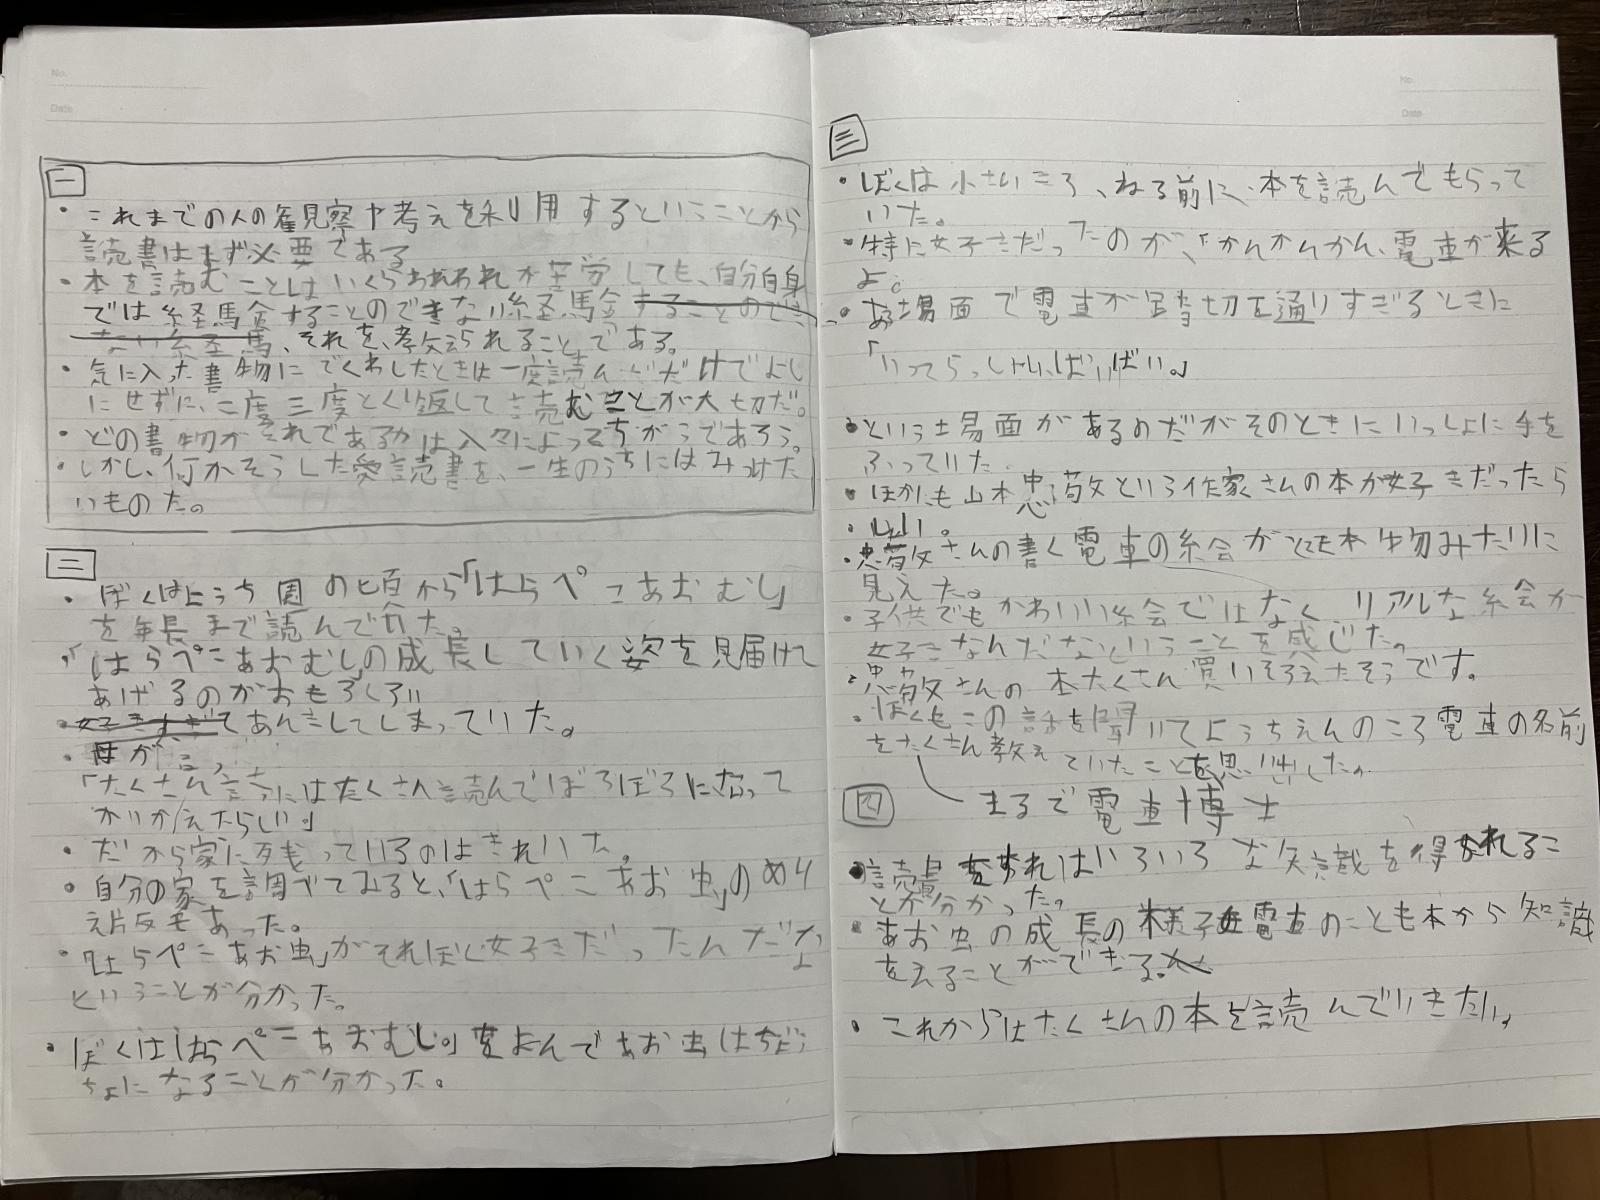 No.
Date
一
・これまでの人の観察や考えを利用するということから
読書はまず必要である
・本を読むことはいくらわれわれが苦労しても、自分自身
では経験することのできない経験することのでき
ない経験、それを、教えられることである。
・気に入った書物にでくわしたときは一度読んだだけでよし
にせずに、二度三度とくり返して読むことが大切だ。
・どの書物がそれであるかは人々によってちがうであろう。
・しかし、何かそうした愛読書を、一生のうちにはみつけた
いものだ。
二
・ぼくはようち園の頃から「はらぺこあおむし」
を年長まで読んで
・「はらぺこあおむし」の成長していく姿を見届けて
あげるのがおもしろくろい
・好きすぎてあんきしてしまっていた。
・母が言う
「たくさん言うにはたくさん読んでぼろぼろになって
かいかえたらしい。」
・だから家に残っているのはきれいだ。
・自分の家を調べてみると、「はらぺこあお虫」のめり
え片反もあった。
・「はらぺこあお虫」がそれぼく好きだったんだな
ということが分かった。
・ぼくははらぺこあおむし。をよんであお虫はちょう
ちょになることが分かった。
No.
Date
三
・ぼくは小さいころ、ねる前に、本を読んでもらって
いた。
・特に好きだったのが、「かんかんかん、電車が来る
よ。
・ある場面で電車が踏切を通りすぎるときに
「いってらっしゃい、ばいばい。」
・という場面があるのだがそのときにいっしょに手を
ふっていた。
・ほかにも山本忠敬という作家さんの本が好きだったら
しい。
・忠敬さんの書く電車の絵がとても本物みたいに
見えた。
・子供でもかわいい絵ではなく、リアルな絵が
好きなんだなということを感じた。
・忠敬さんの本たくさん買いそろえたそうです。
・ぼくもこの話を聞いてようちえんのころ電車の名前
をたくさん教えていたことを思い出した。
まるで電車博士
四
・読書をすればいろいろな知識を得られるこ
とが分かった。
・あお虫の成長の様子も電車のことも本から知識
をえることができる。
・これからはたくさんの本を読んでいきたい。